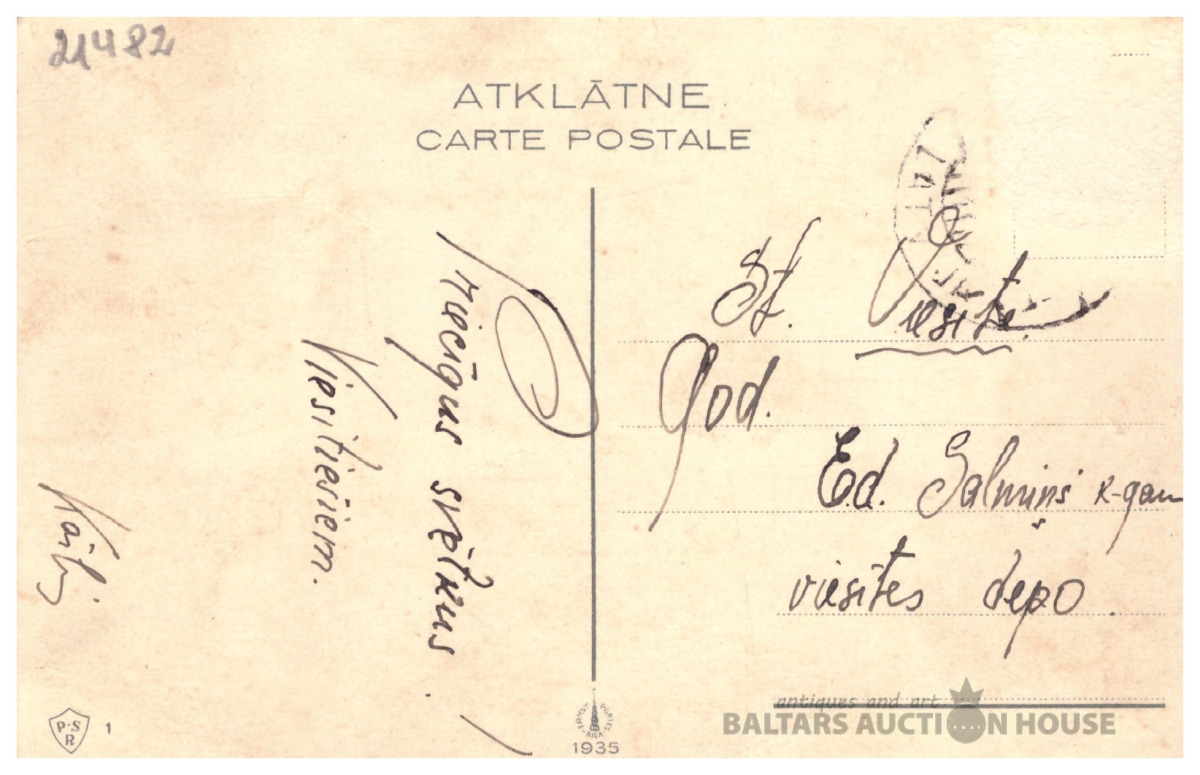 21482
ATKLĀTNE
CARTE POSTALE
Priecīgus svētkus
Viesītiešiem.
St. Viesīte.
God.
Ed. Salmiņš k-gam
viesītes depo.
P.S.R 1
1935
antiques and art
BALTARS AUCTION HOUSE